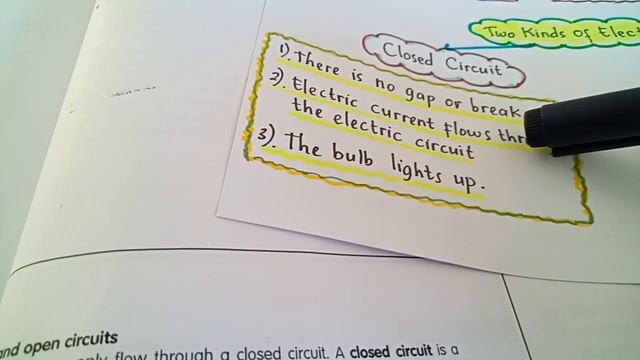 Two Kinds of Elect
Closed Circuit
1). There is no gap or break
2). Electric current flows thr
the electric circuit
3). The bulb lights up.
and open circuits
only flow through a closed circuit. A closed circuit is a